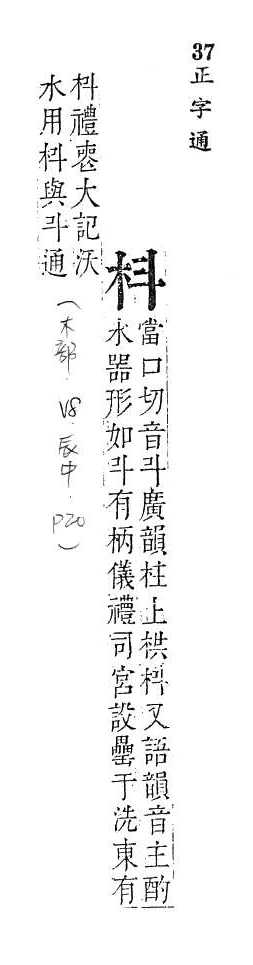 37 正字通
枓
當口切音斗廣韻柱上栱枓又語韻音主酌
水器形如斗有柄儀禮司宮設罍于洗東有
枓禮喪大記沃
水用枓與斗通
(木部. V8. 辰中. P20)